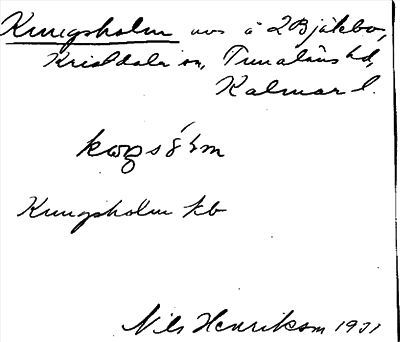 Kungsholm avs å 2 Bjälebo,
Kristdala sn, Tunaläns hd,
Kalmar l.
Kungsholm kb
Nils Henrikson 1931